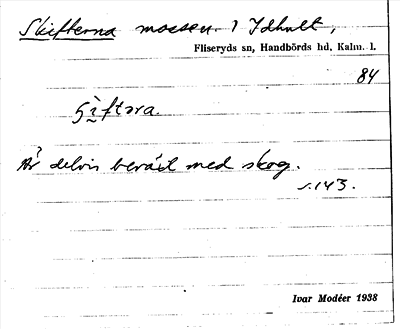 Skifterna mossen. 1 Idhult,
Fliseryds sn, Handbörds hd, Kalm. l.
84
ʂìftəra.
Är delvis beväxt med skog.
s. 143.
Ivar Modéer 1938